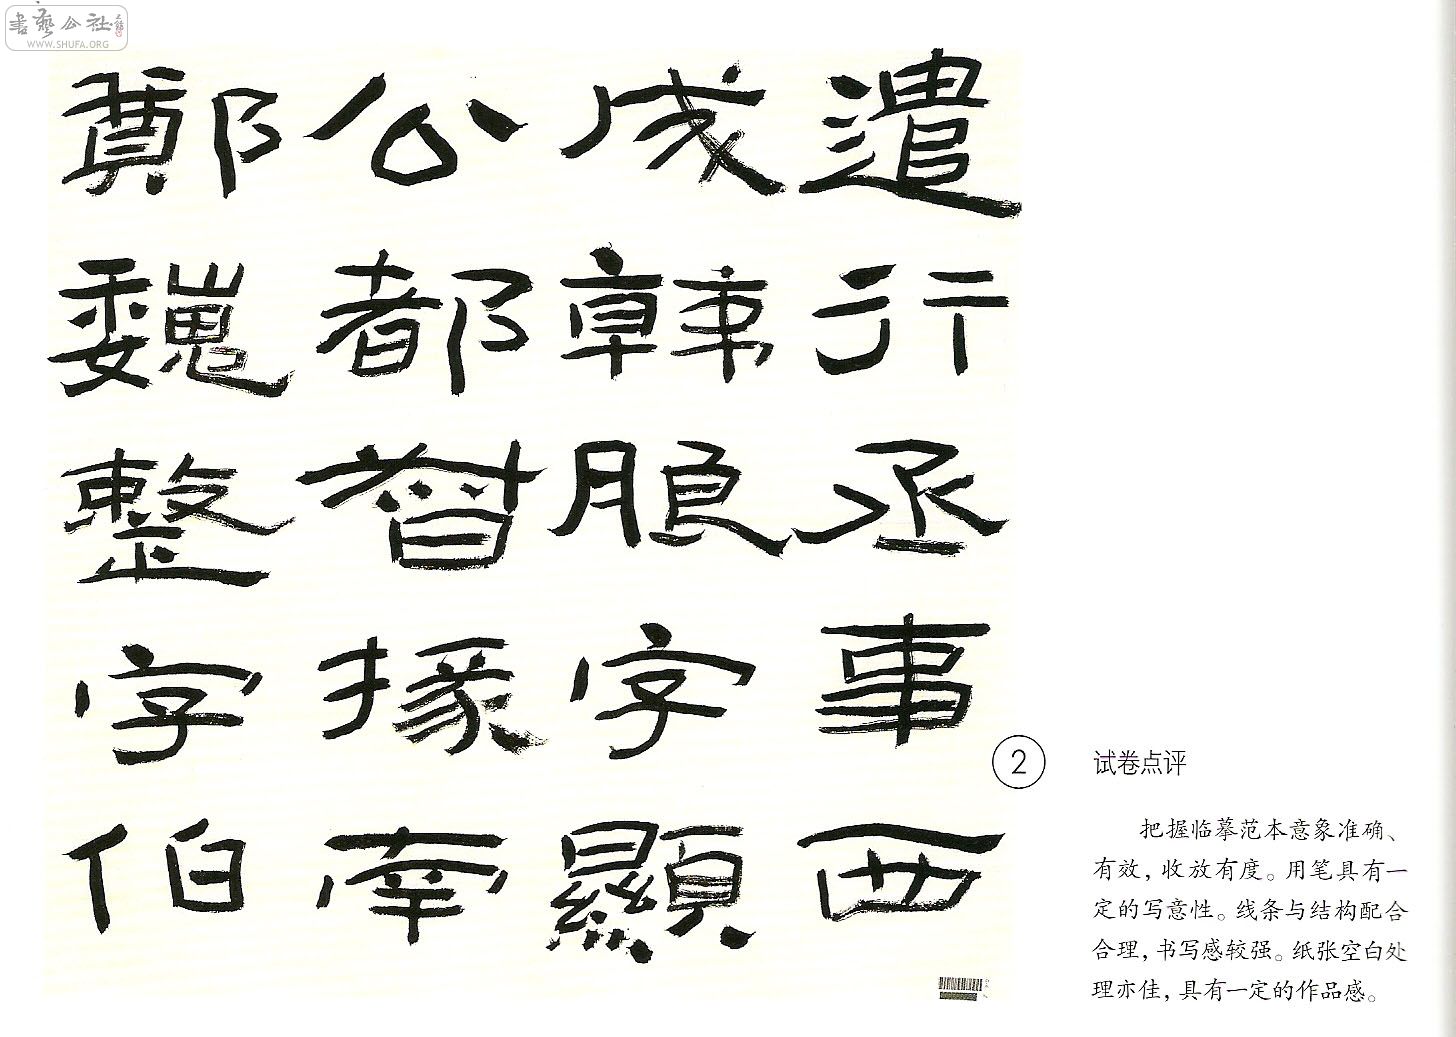 書藝公社
WWW.SHUFA.ORG
遣行丞事西
成韓朖字顯
公都督掾南
鄭魏整字伯
2
试卷点评
把握临摹范本意象准确、
有效，收放有度。用笔具有一
定的写意性。线条与结构配合
合理，书写感较强。纸张空白处
理亦佳，具有一定的作品感。